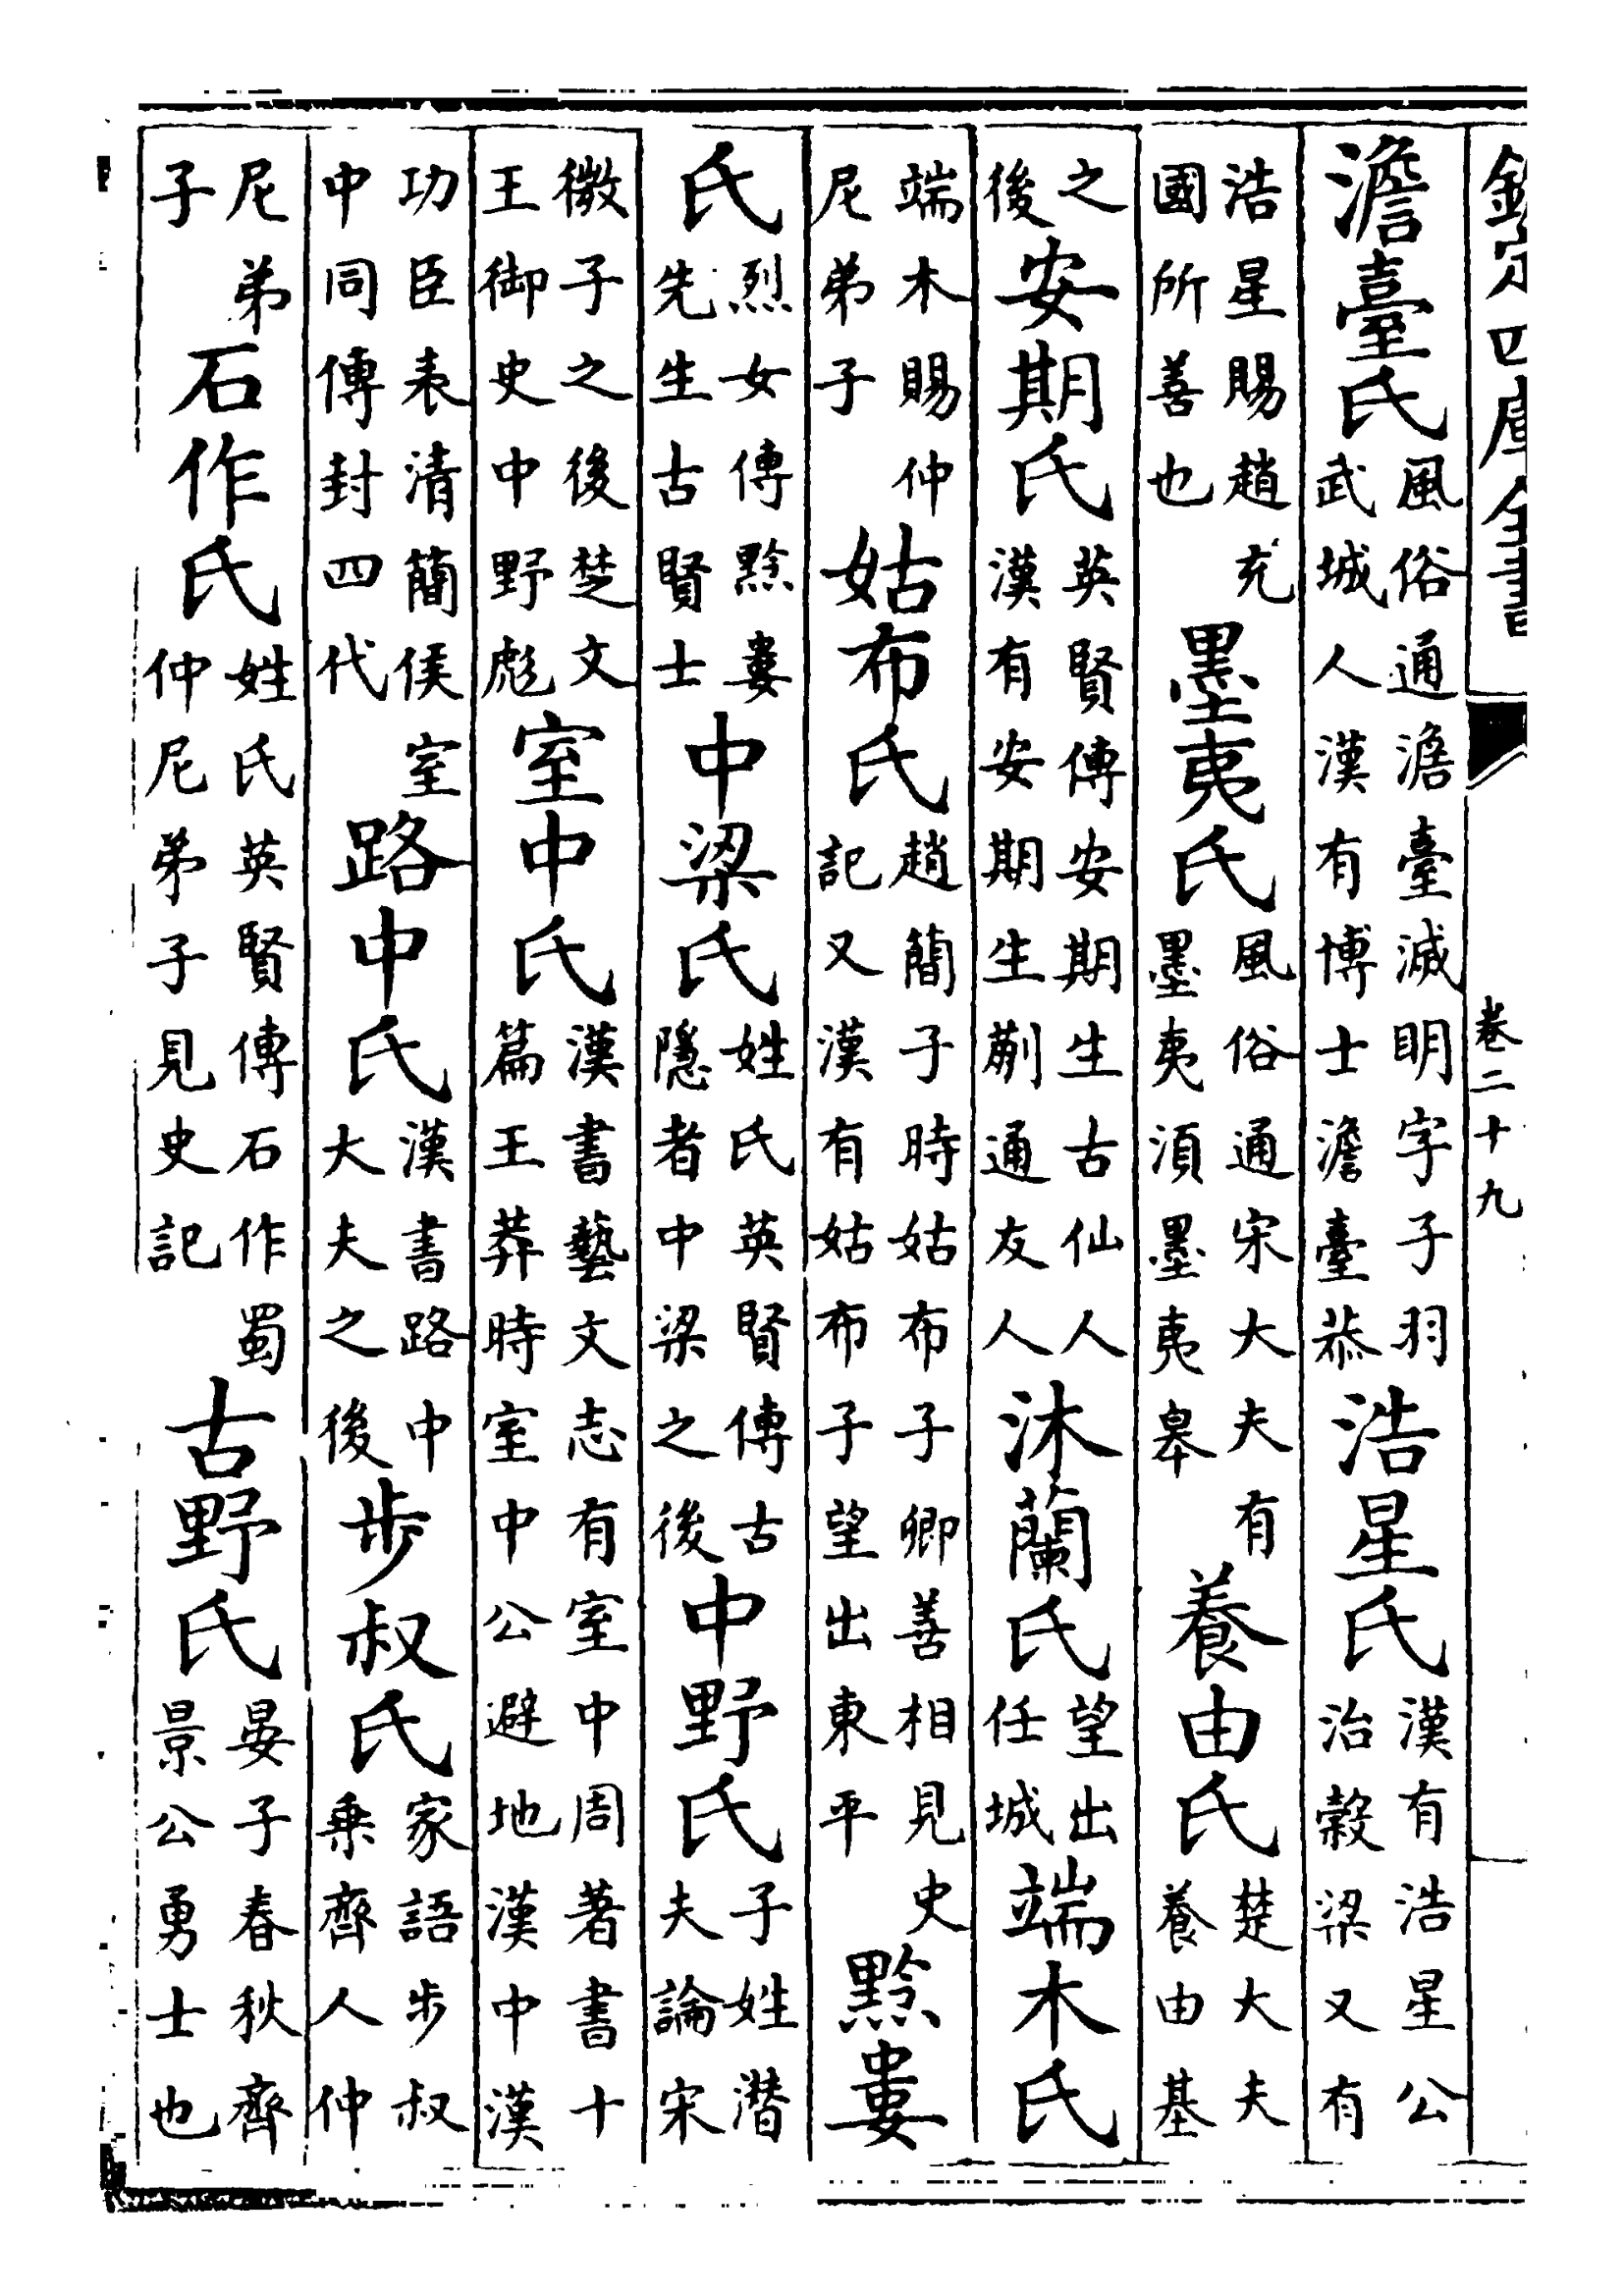 欽定四庫全書 卷二十九
澹臺氏風俗通澹臺滅明字子羽武城人漢有博士澹臺恭浩星氏漢有浩星公治穀梁又有
浩星賜趙充國所善也墨夷氏風俗通宋大夫有墨夷須墨夷皋養由氏楚大夫養由基
之後安期氏英賢傳安期生古仙人漢有安期生蒯通友人沐蘭氏望出任城端木氏
端木賜仲尼弟子姑布氏趙簡子時姑布子卿善相見史記又漢有姑布子望出東平黔婁
氏烈女傳黔婁先生古賢士中梁氏姓氏英賢傳古隱者中梁之後中野氏子姓潛夫論宋
微子之後楚文王御史中野彪室中氏漢書藝文志有室中周著書十篇王莽時室中公避地漢中漢
功臣表清簡侯室中同傳封四代路中氏漢書路中大夫之後步叔氏家語步叔乗齊人仲
尼弟子石作氏姓氏英賢傳石作蜀仲尼弟子見史記古野氏晏子春秋齊景公勇士也